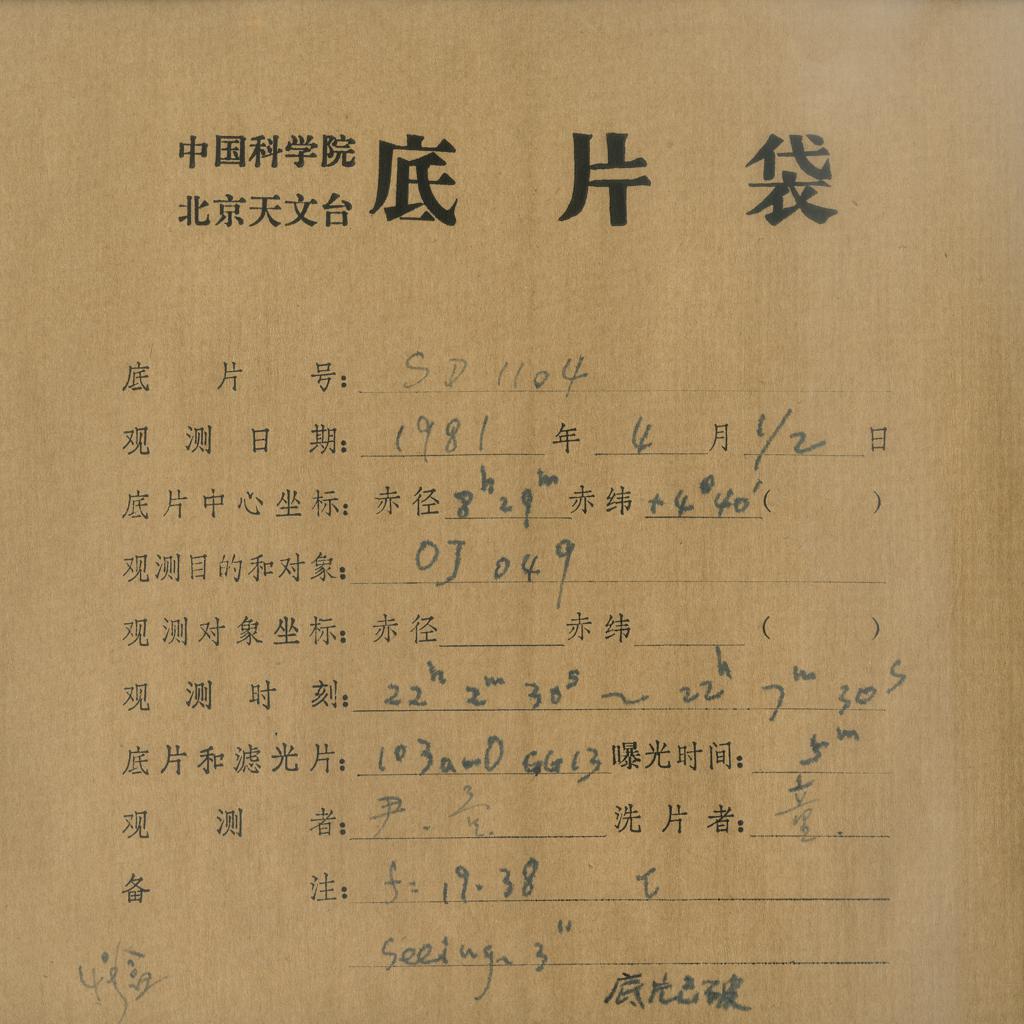 中国科学院
北京天文台
底片袋
底片号: SD 1104
观测日期: 1981 年 4 月 1/2 日
底片中心坐标: 赤径 8h 29m 赤纬 +4°40′ ( )
观测目的和对象: OJ 049
观测对象坐标: 赤径 赤纬 ( )
观测时刻: 22h 2m 30s ~ 22h 7m 30s
底片和滤光片: 103a-O GG13 曝光时间: 5m
观测者: 尹. 洗片者: 童.
备注: f= 19.38
seeing ~ 3″
底片已破